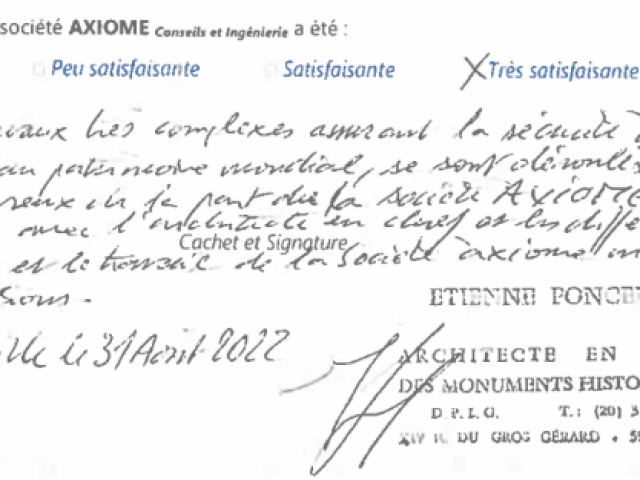 société AXIOME Conseils et Ingénierie a été :
Peu satisfaisante Satisfaisante Très satisfaisante
vaux très complexes assurant la sécurité
au patrimoine mondial, se sont déroulés
part de la société AXIOME
avec l'architecte en chef et les diffé
Cachet et Signature
et le travail de la société axiome
sions.
ETIENNE PONCE
lle le 31 Août 2022
ARCHITECTE EN
DES MONUMENTS HISTO
D.P.L.G. T.: (20) 3
DU GROS GÉRARD • 59